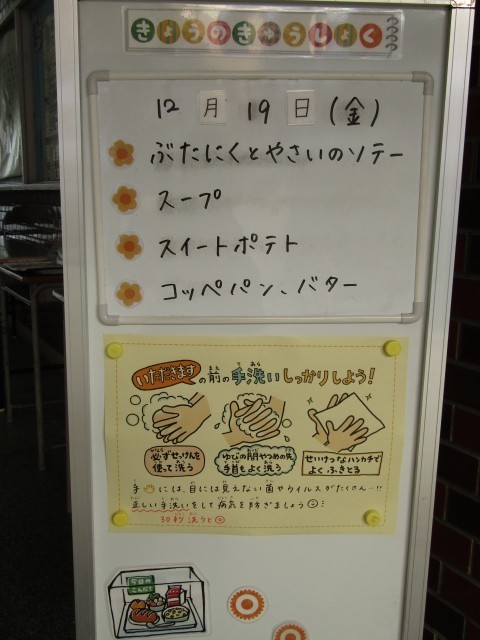 きょうのきゅうしょく
12月19日(金)
ぶたにくとやさいのソテー
スープ
スイートポテト
コッペパン、バター
いただきますの前の手洗いしっかりしよう!
必ずせっけんを使って洗う
ゆびの間やつめの先、手首もよく洗う
せいけつなハンカチでよくふきとる
手には、目には見えない菌やウイルスがたくさん…!!
正しい手洗いをして病気を防ぎましょう
30秒洗うヒ
今日のこんだて